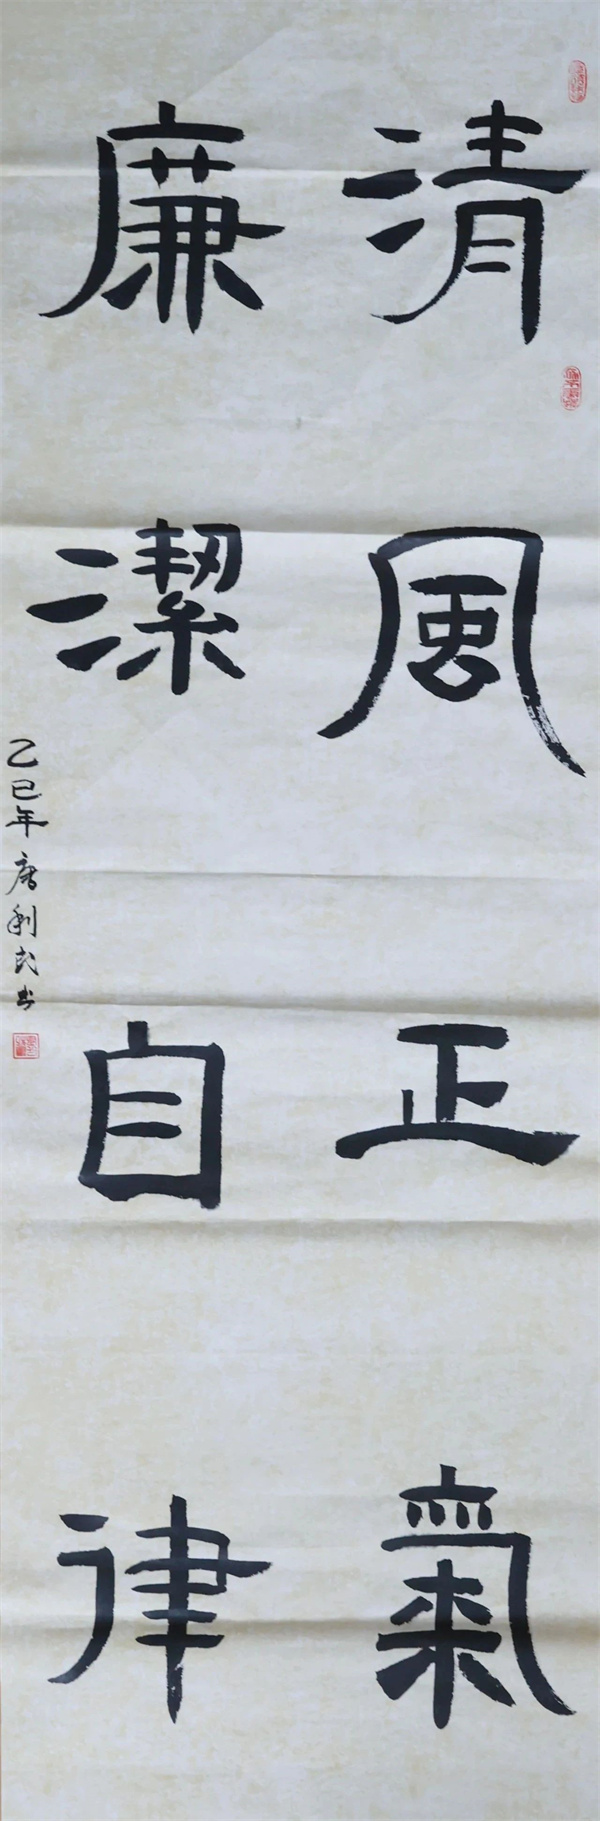 清風正氣
廉潔自律
乙巳年唐利民書